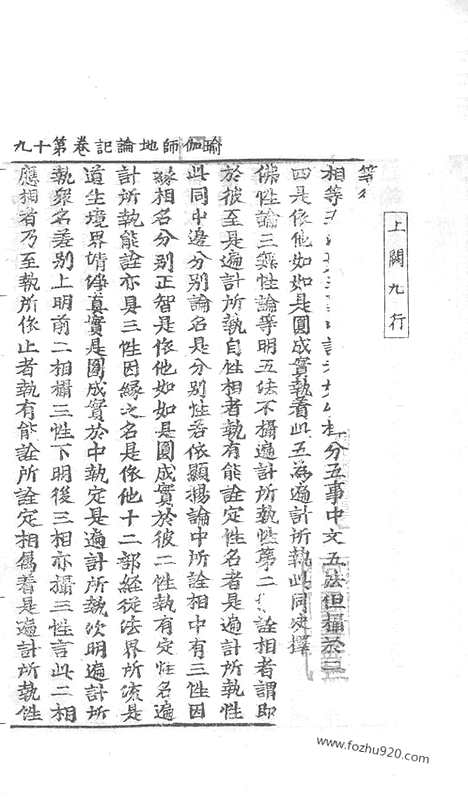 瑜伽師地論記卷第十九
上闕九行
等
相等 分五事中文五法但攝於三
四是依他如如是圓成實執着此五為遍計所執此同決擇
佛性論三無性論等明五法不攝遍計所執性第二 詮相者謂即
於彼至是遍計所執自性相者執有能詮定性名者是遍計所執性
此同中邊分別論名是分別性若依顯揚論中所詮相中有三性因
緣相名分別正智是依他如如是圓成實於彼二性執有定性名遍
計所執能詮亦具三性因緣之名是依他十二部經從法界所流是
道生境界清淨真實是圓成實於中執定是遍計所執次明遍計所
執眾名差別上明前二相攝三性下明後三相亦攝三性言此二相
應相者乃至執所依止者執有能詮所詮定相屬着是遍計所執性
www.fozhu920.com